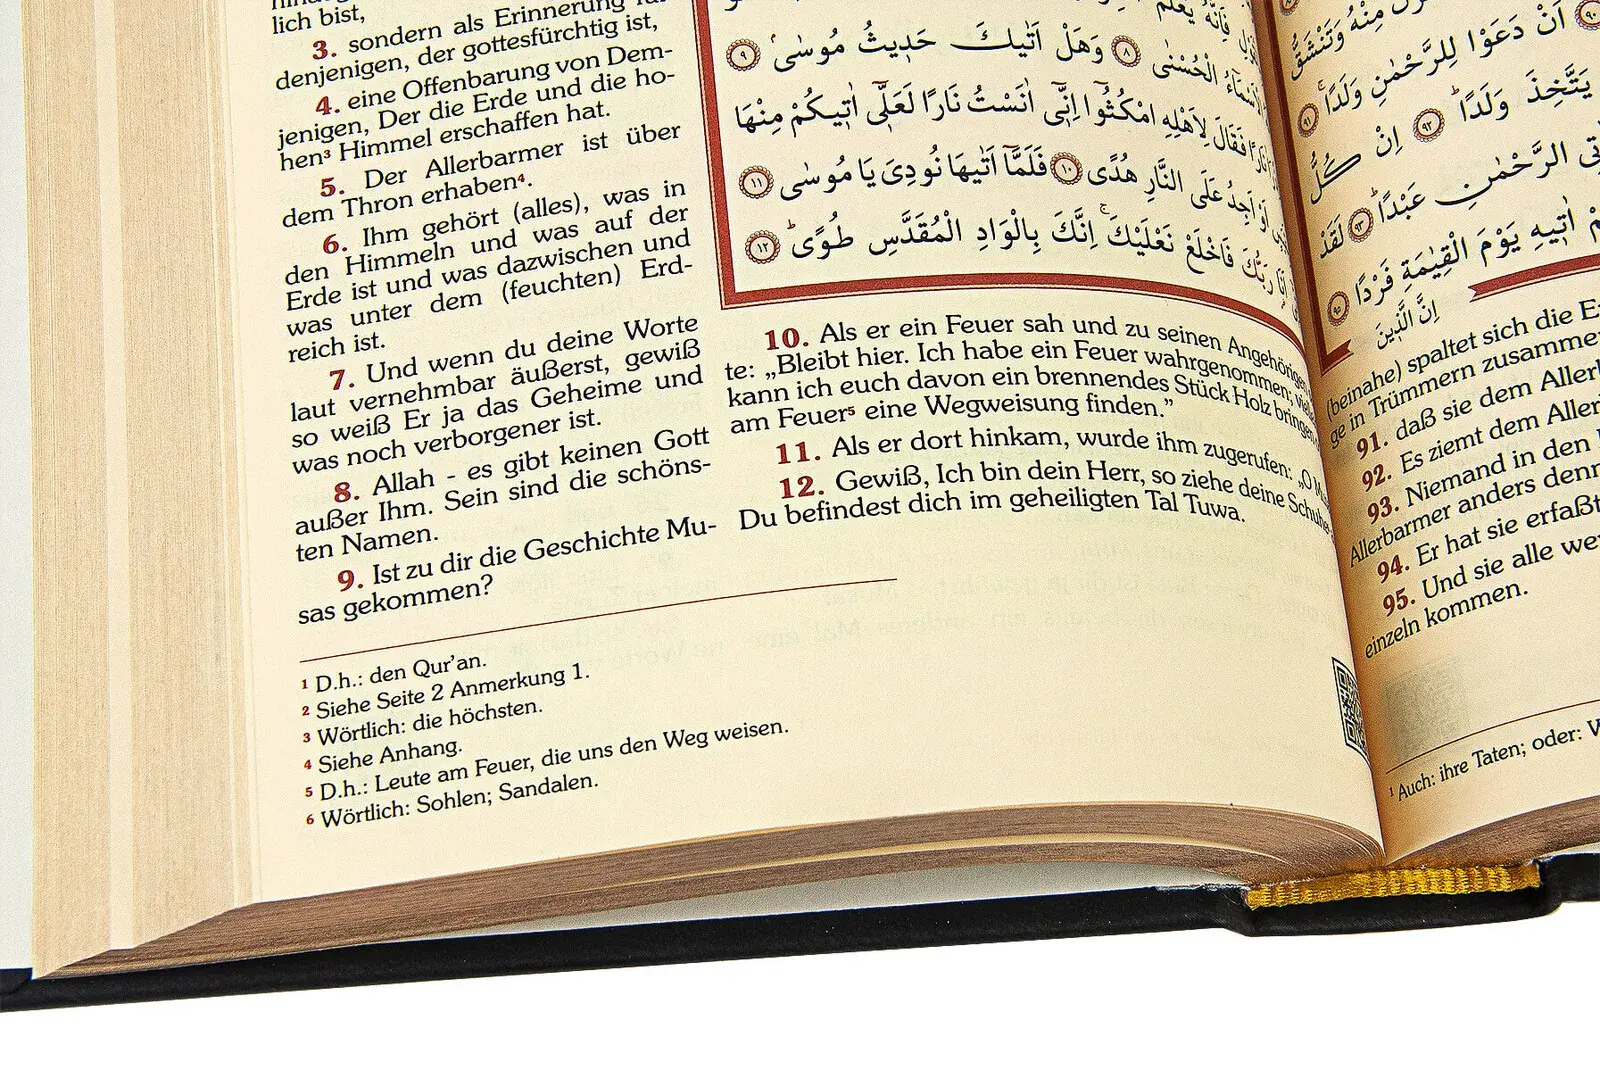 lich bist,
3. sondern als Erinnerung für
denjenigen, der gottesfürchtig ist,
4. eine Offenbarung von Dem-
jenigen, Der die Erde und die ho-
hen³ Himmel erschaffen hat.
5. Der Allerbarmer ist über
dem Thron erhaben⁴.
6. Ihm gehört (alles), was in
den Himmeln und was auf der
Erde ist und was dazwischen und
was unter dem (feuchten) Erd-
reich ist.
7. Und wenn du deine Worte
laut vernehmbar äußerst, gewiß
so weiß Er ja das Geheime und
was noch verborgener ist.
8. Allah - es gibt keinen Gott
außer Ihm. Sein sind die schöns-
ten Namen.
9. Ist zu dir die Geschichte Mu-
sas gekommen?
فَاِنَّهُ يَعْلَمُ
الْاَسْمَٓاءُ الْحُسْنٰى ﴿٨﴾ وَهَلْ اَتٰيكَ حَد۪يثُ مُوسٰىۢ ﴿٩﴾
نَارًا فَقَالَ لِاَهْلِهِ امْكُثُٓوا اِنّ۪ٓي اٰنَسْتُ نَارًا لَعَلّ۪ٓي اٰت۪يكُمْ مِنْهَا
اَوْ اَجِدُ عَلَى النَّارِ هُدًى ﴿١٠﴾ فَلَمَّٓا اَتٰيهَا نُودِيَ يَا مُوسٰى ﴿١١﴾
اَنَا۬ رَبُّكَ فَاخْلَعْ نَعْلَيْكَۚ اِنَّكَ بِالْوَادِ الْمُقَدَّسِ طُوًىۜ ﴿١٢﴾
10. Als er ein Feuer sah und zu seinen Angehörigen
te: „Bleibt hier. Ich habe ein Feuer wahrgenommen;
kann ich euch davon ein brennendes Stück Holz bringen
am Feuer⁵ eine Wegweisung finden.”
11. Als er dort hinkam, wurde ihm zugerufen: „O
12. Gewiß, Ich bin dein Herr, so ziehe deine Schuhe
Du befindest dich im geheiligten Tal Tuwa.
¹ D.h.: den Qur’an.
² Siehe Seite 2 Anmerkung 1.
³ Wörtlich: die höchsten.
⁴ Siehe Anhang.
⁵ D.h.: Leute am Feuer, die uns den Weg weisen.
⁶ Wörtlich: Sohlen; Sandalen.
مِنْهُ وَتَنْشَقُّ
﴿٩٠﴾ اَنْ دَعَوْا لِلرَّحْمٰنِ وَلَدًاۚ ﴿٩١﴾
يَتَّخِذَ وَلَدًاۜ ﴿٩٢﴾ اِنْ كُلُّ
الرَّحْمٰنِ عَبْدًاۜ ﴿٩٣﴾ لَقَدْ
اٰت۪يهِ يَوْمَ الْقِيٰمَةِ فَرْدًا ﴿٩٥﴾
اِنَّ الَّذ۪ينَ
(beinahe) spaltet sich die
ge in Trümmern
91. daß sie dem
92. Es ziemt dem
93. Niemand in den
Allerbarmer anders denn
94. Er hat sie erfaßt
95. Und sie alle
einzeln kommen.
¹ Auch: ihre Taten; oder: